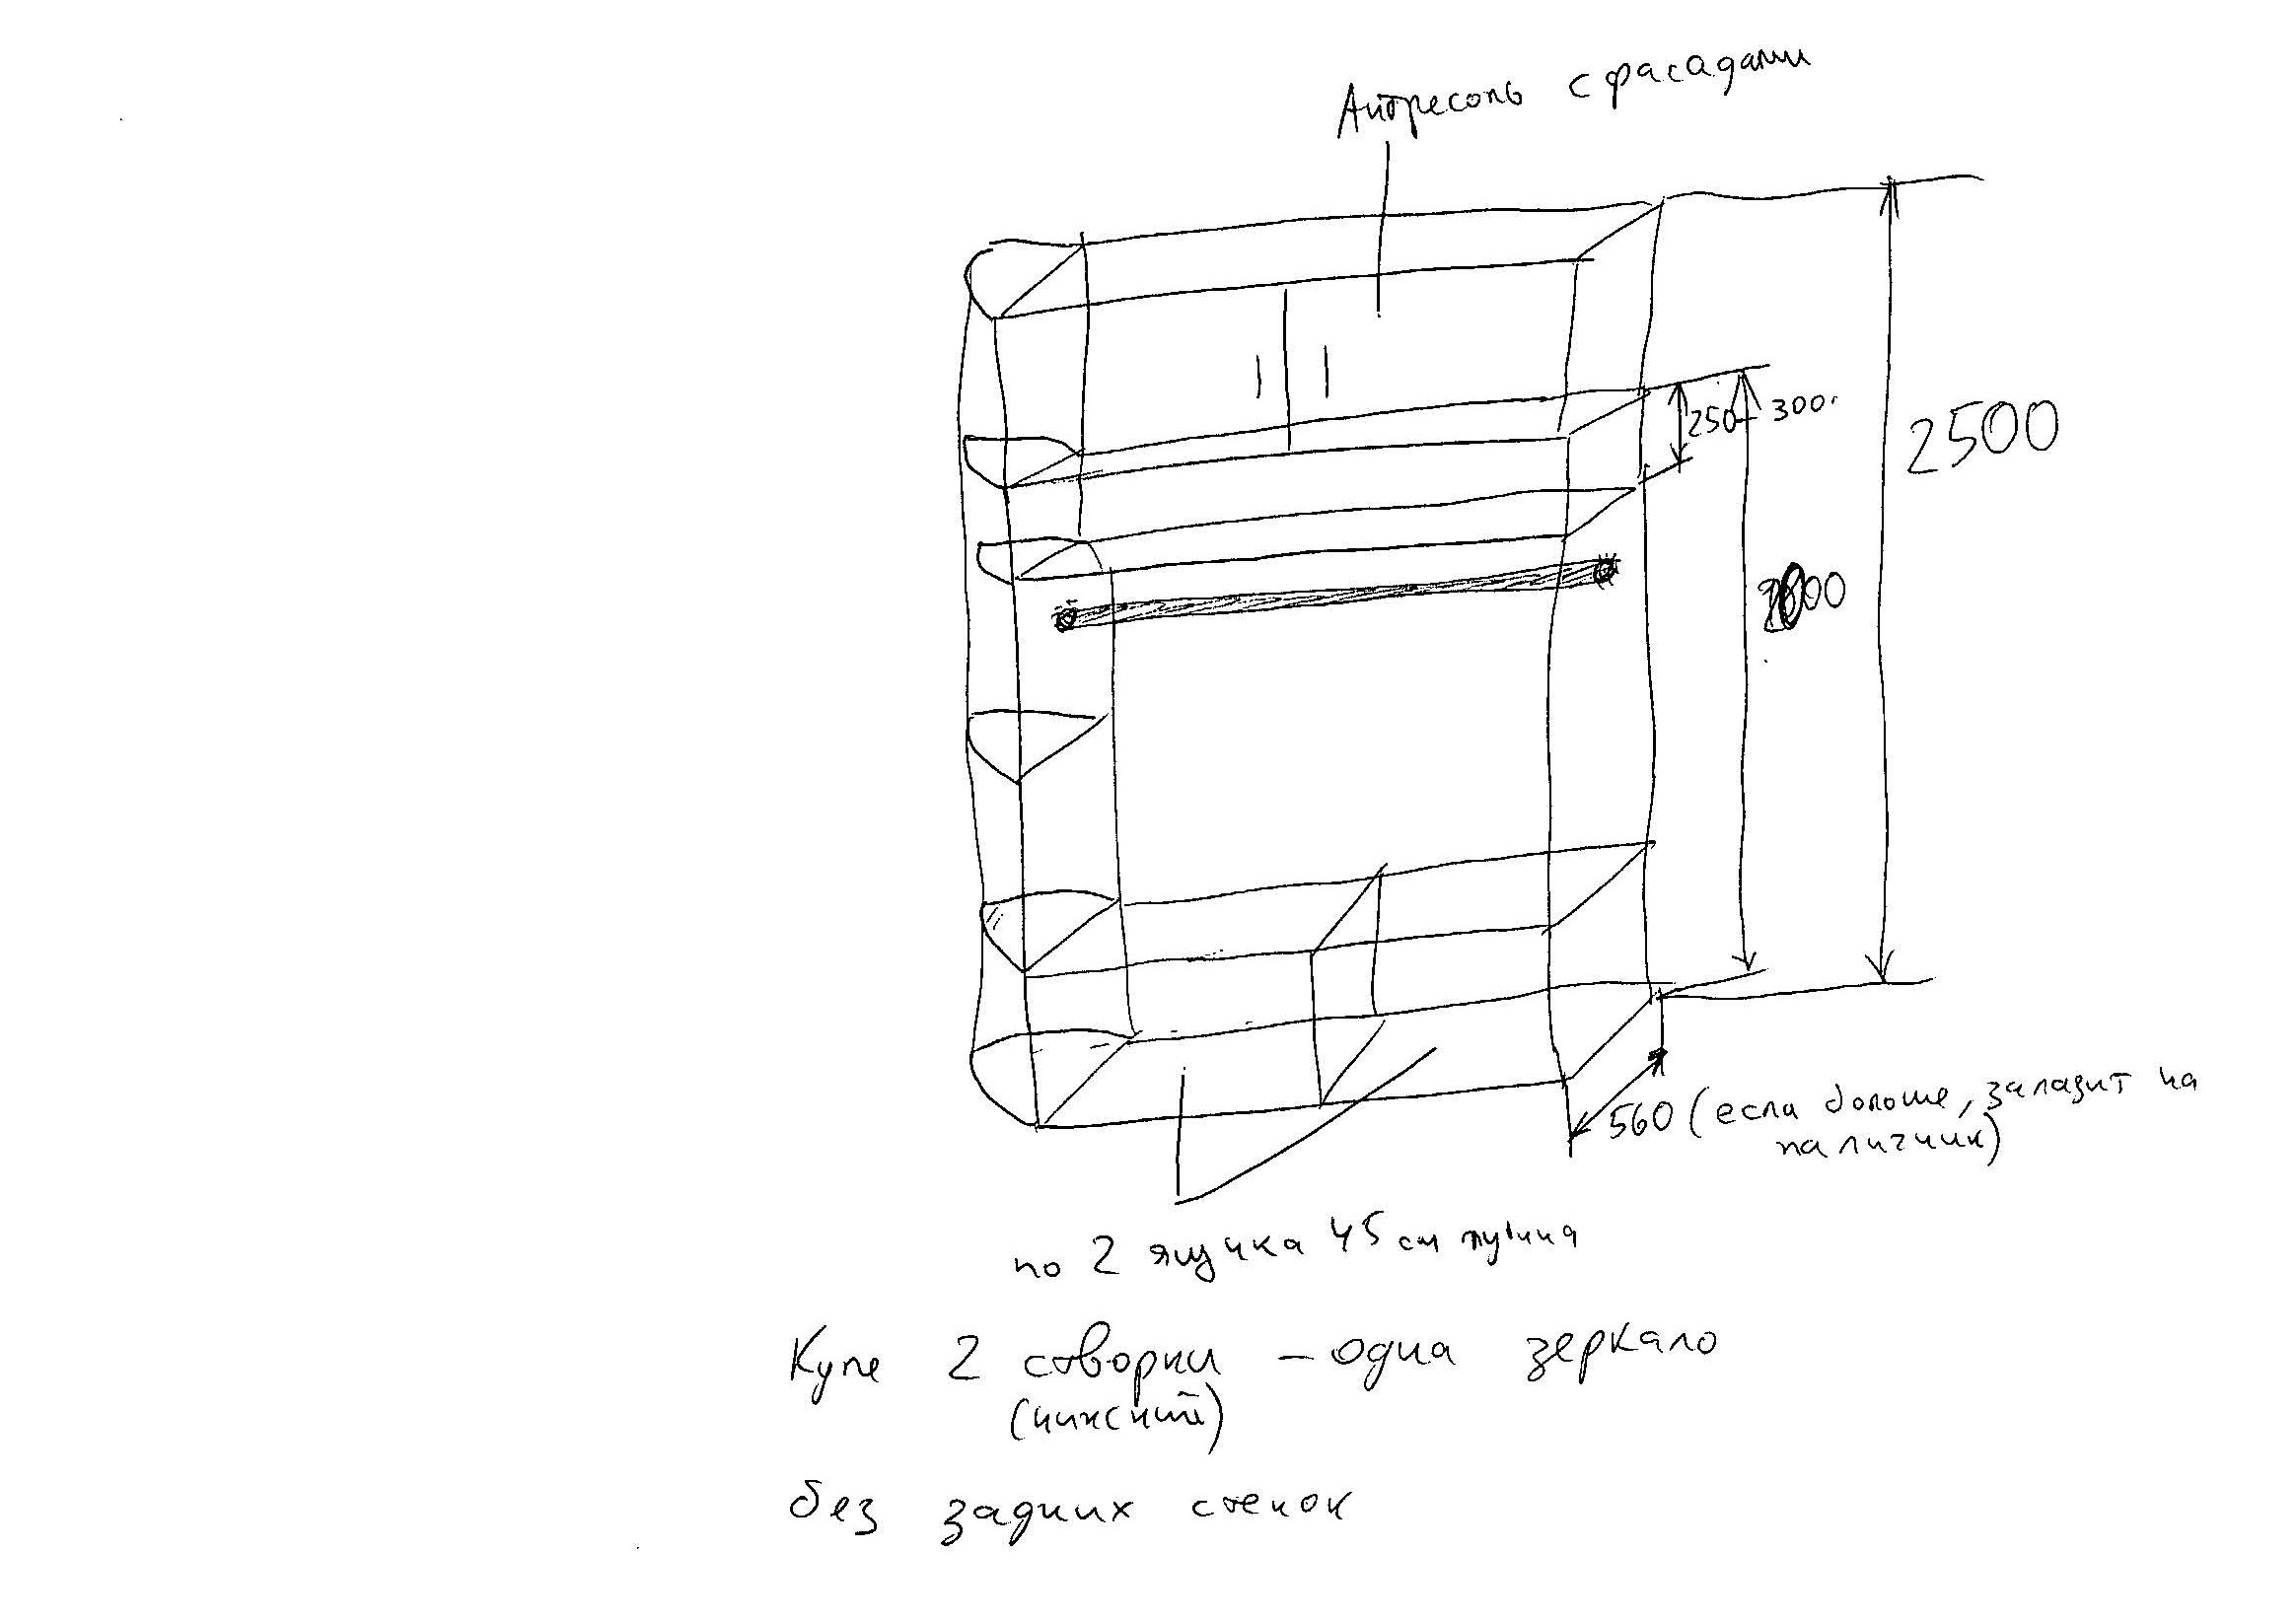 Антресоль с фасадами
250-300
2500
560 (если больше, залазит на
наличник)
по 2 ящика 45 см глубина
Купе 2 створки – одна зеркало
(нижний)
без задних стенок